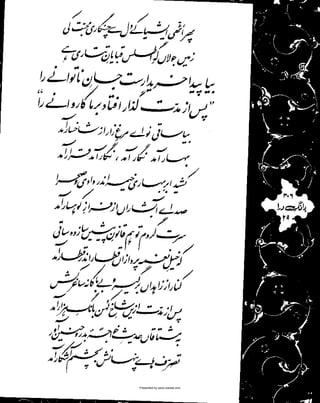 پھر اُٹھی ایشیا کے دل سے چنگاری محبت کی
زمیں جولاں گہِ اطلس قبایانِ تتاری ہے
بیا پیدا خریدارست جانِ ناتوانے را
”پس از مدت گذار افتاد بر ما کاروانے را“
بیا ساقی نوائے مرغِ زار از شاخسار آمد
بہار آمد نگار آمد، نگار آمد قرار آمد
کشید ابرِ بہاری خیمہ اندر وادی و صحرا
صدائے آبشاراں از فرازِ کوہسار آمد
سرت گردم تو ہم قانونِ پیشیں ساز دہ ساقی
کہ خیلِ نغمہ پردازاں قطار اندر قطار آمد
کنار از زاہداں برگیر و بیباکانہ ساغر کش
پس از مدت ازیں شاخِ کہن بانگِ ہزار آمد
بہ مشتاقاں حدیثِ خواجۂ بدر و حنین آور
تصرف ہائے پنہانش بچشم آشکار آمد
۳۰۶
بانگِ درا